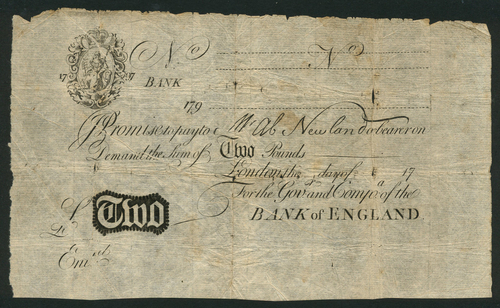 No No
17 97
BANK
179
I Promise to pay to Mr. Ab Newland or bearer on
Demand the Sum of Two Pounds
London the day of 17
For the Govr. and Compa. of the
£ Two BANK of ENGLAND.
Entd.